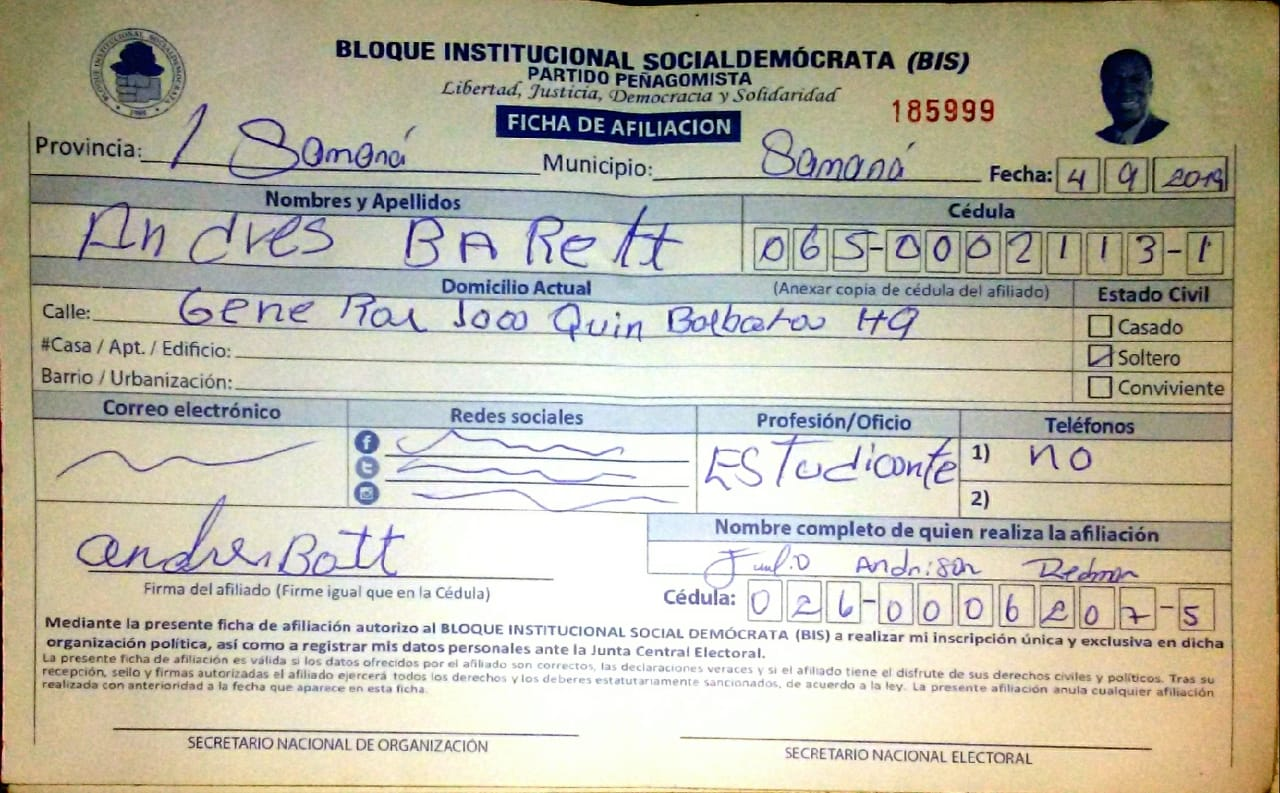 BLOQUE INSTITUCIONAL SOCIALDEMÓCRATA (BIS)
PARTIDO PEÑAGOMISTA
Libertad, Justicia, Democracia y Solidaridad
185999
FICHA DE AFILIACION
Provincia: Samaná Municipio: Samaná Fecha: 4 9 2019
Nombres y Apellidos Cédula
Andres BARett 065-0002113-1
Domicilio Actual (Anexar copia de cédula del afiliado) Estado Civil
Calle: GeneRal Joa Quin Balbatoa #9
Casado
#Casa / Apt. / Edificio: Soltero
Barrio / Urbanización: Conviviente
Correo electrónico Redes sociales Profesión/Oficio Teléfonos
ESTudicante 1) no
2)
Nombre completo de quien realiza la afiliación
Andrison
Firma del afiliado (Firme igual que en la Cédula) Cédula: 026-0006207-5
Mediante la presente ficha de afiliación autorizo al BLOQUE INSTITUCIONAL SOCIAL DEMÓCRATA (BIS) a realizar mi inscripción única y exclusiva en dicha
organización política, así como a registrar mis datos personales ante la Junta Central Electoral.
La presente ficha de afiliación es válida si los datos ofrecidos por el afiliado son correctos, las declaraciones veraces y si el afiliado tiene el disfrute de sus derechos civiles y políticos. Tras su
recepción, sello y firmas autorizadas el afiliado ejercerá todos los derechos y los deberes estatutariamente sancionados, de acuerdo a la ley. La presente afiliación anula cualquier afiliación
realizada con anterioridad a la fecha que aparece en esta ficha.
SECRETARIO NACIONAL DE ORGANIZACIÓN SECRETARIO NACIONAL ELECTORAL